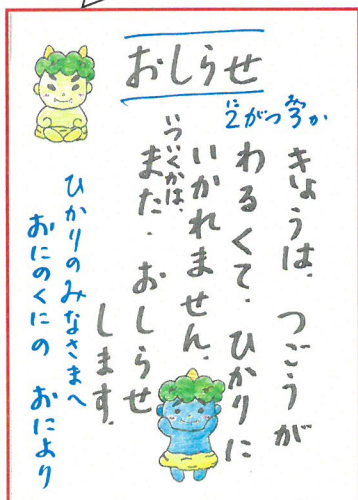 おしらせ
2がつ3か
きょうは、つごうが
わるくて、ひかりに
いかれません。
いついくかは、
また、おしらせ
します。
ひかりのみなさまへ
おにのくにの おにより